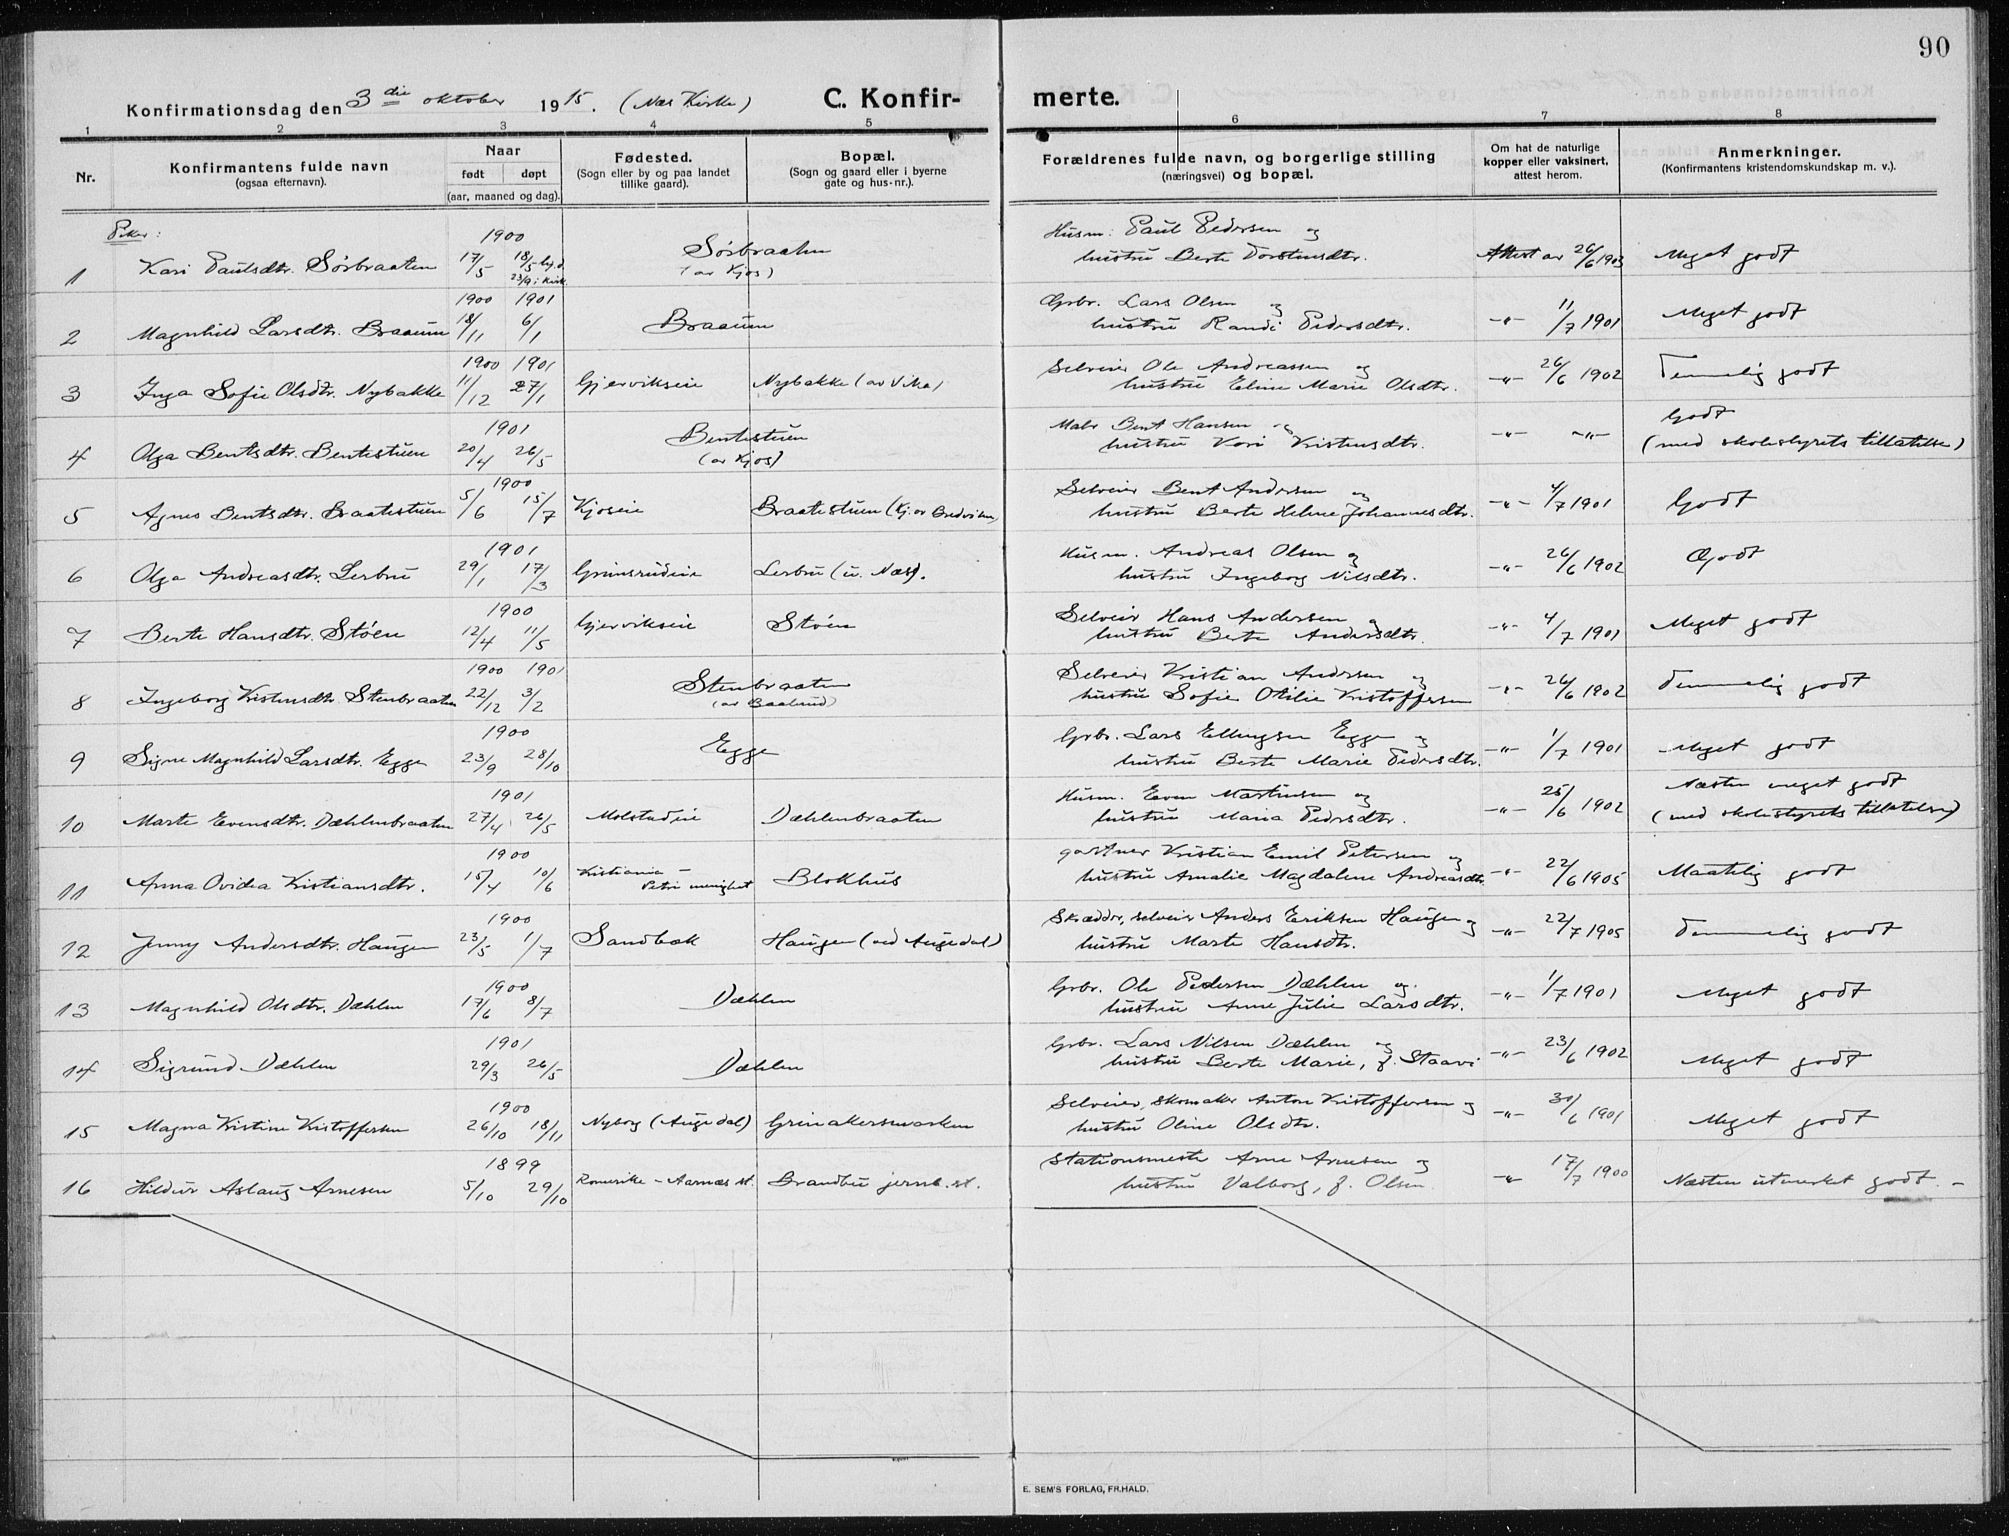 90
Konfirmationsdag den 3die oktober 1915. (Næs Kirke)
C. Konfirmerte.
1 2 3 4 5 6 7 8
Nr.
Konfirmantens fulde navn
(ogsaa efternavn).
Naar
født døpt
(aar, maaned og dag).
Fødested.
(Sogn eller by og paa landet
tillike gaard).
Bopæl.
(Sogn og gaard eller i byerne
gate og hus-nr.).
Forældrenes fulde navn, og borgerlige stilling
(næringsvei) og bopæl.
Om hat de naturlige
kopper eller vaksinert,
attest herom.
Anmerkninger.
(Konfirmantens kristendomskundskap m. v.).
Piker:
1 Kari Paulsdtr. Sørbraaten 1900 17/5 18/5 hj.d. 23/9 i Kirk. Sørbraaten (av Kjos) Husm. Paul Pedersen og
hustru Berte Torstensdtr. Attest av 26/6 1903 Meget godt
2 Magnhild Larsdtr. Braaum 1900 18/11 1901 6/1 Braaum Grbr. Lars Olsen og
hustru Randi Pedersdtr. -"- 11/7 1901 Meget godt
3 Inga Sofie Olsdtr. Nybakke 1900 11/12 1901 27/1 Gjervikseie Nybakke (av Vika) Selveier Ole Andreassen og
hustru Eline Marie Olsdtr. -"- 26/6 1902 Temmelig godt
4 Olga Bentsdtr. Bentestuen 1901 20/4 26/5 Bentestuen (av Kjos) Maler Bent Hansen og
hustru Kari Kristensdtr. -"- -"- Godt
(med skolestyrets tillatelse)
5 Agnes Bentsdtr. Braatestuen 1900 5/6 15/7 Kjoseie Braatestuen (Kj. av Bredviken) Selveier Bent Andersen og
hustru Berte Helene Johannesdtr. -"- 4/7 1901 Godt
6 Olga Andreasdtr. Lerbru 1901 29/1 17/3 Grinsrudeie Lerbru (u. Næs). Husm. Andreas Olsen og
hustru Ingeborg Nilsdtr. -"- 26/6 1902 Godt
7 Berte Hansdtr. Støen 1900 12/4 11/5 Gjervikseie Støen Selveier Hans Andersen og
hustru Berte Andersdtr. -"- 4/7 1901 Meget godt
8 Ingeborg Kristensdtr Stenbraaten 1900 22/12 1901 3/2 Stenbraaten (av Baalerud) Selveier Kristian Andersen og
hustru Sofie Otilie Kristoffersen -"- 26/6 1902 Temmelig godt
9 Signe Magnhild Larsdtr. Egge 1900 23/9 28/10 Egge Grbr. Lars Ellingsen Egge og
hustru Berte Marie Pedersdtr. -"- 1/7 1901 Meget godt
10 Marte Evensdtr. Dæhlenbraaten 1901 27/4 26/5 Molstadeie Dæhlenbraaten Husm. Even Martinsen og
hustru Maria Pedersdtr. -"- 25/6 1902 Næsten meget godt
(med skolestyrets tillatelse)
11 Anna Ovidea Kristiansdtr. 1900 15/4 10/6 Kristiania - Petri menighet Blokhus gartner Kristian Emil Petersen og
hustru Amalie Magdalene Andreasdtr. -"- 22/6 1905 Maatelig godt
12 Jenny Andersdtr. Haugen 1900 23/5 1/7 Sandbæk Haugen (ved Augedal) Skrædder, selveier Anders Eriksen Haugen og
hustru Marte Hansdtr. -"- 22/7 1905 Temmelig godt
13 Magnhild Olsdtr. Dæhlen 1900 17/6 8/7 Dæhlen Grbr. Ole Pedersen Dæhlen og
hustru Anne Julie Larsdtr. -"- 1/7 1901 Meget godt
14 Sigrund Dæhlen 1901 29/3 26/5 Dæhlen Grbr. Lars Nilsen Dæhlen og
hustru Berte Marie, f. Staavi -"- 23/6 1902 Meget godt
15 Magna Kristine Kristoffersen 1900 26/10 18/11 Nyborg (Augedal) Grinakersmarken Selveier, skomaker Anton Kristoffersen og
hustru Oline Olsdtr. -"- 30/6 1901 Meget godt
16 Hildur Aslaug Arnesen 1899 5/10 29/10 Romerike - Aarnæs st. Brandbu jernb.st. Stationsmester Arne Arnesen og
hustru Valborg, f. Olsen -"- 17/7 1900 Næsten utmerket godt. -
E. SEM'S FORLAG, FR.HALD.